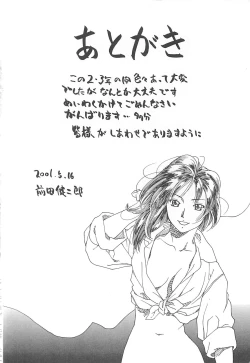 あとがき
この2・3年の間色々あって大変
でしたがなんとか大丈夫です
めいわくかけてごめんなさい
がんばります… 多分
皆様がしあわせでありますように
2001.5.16
前田俊二郎